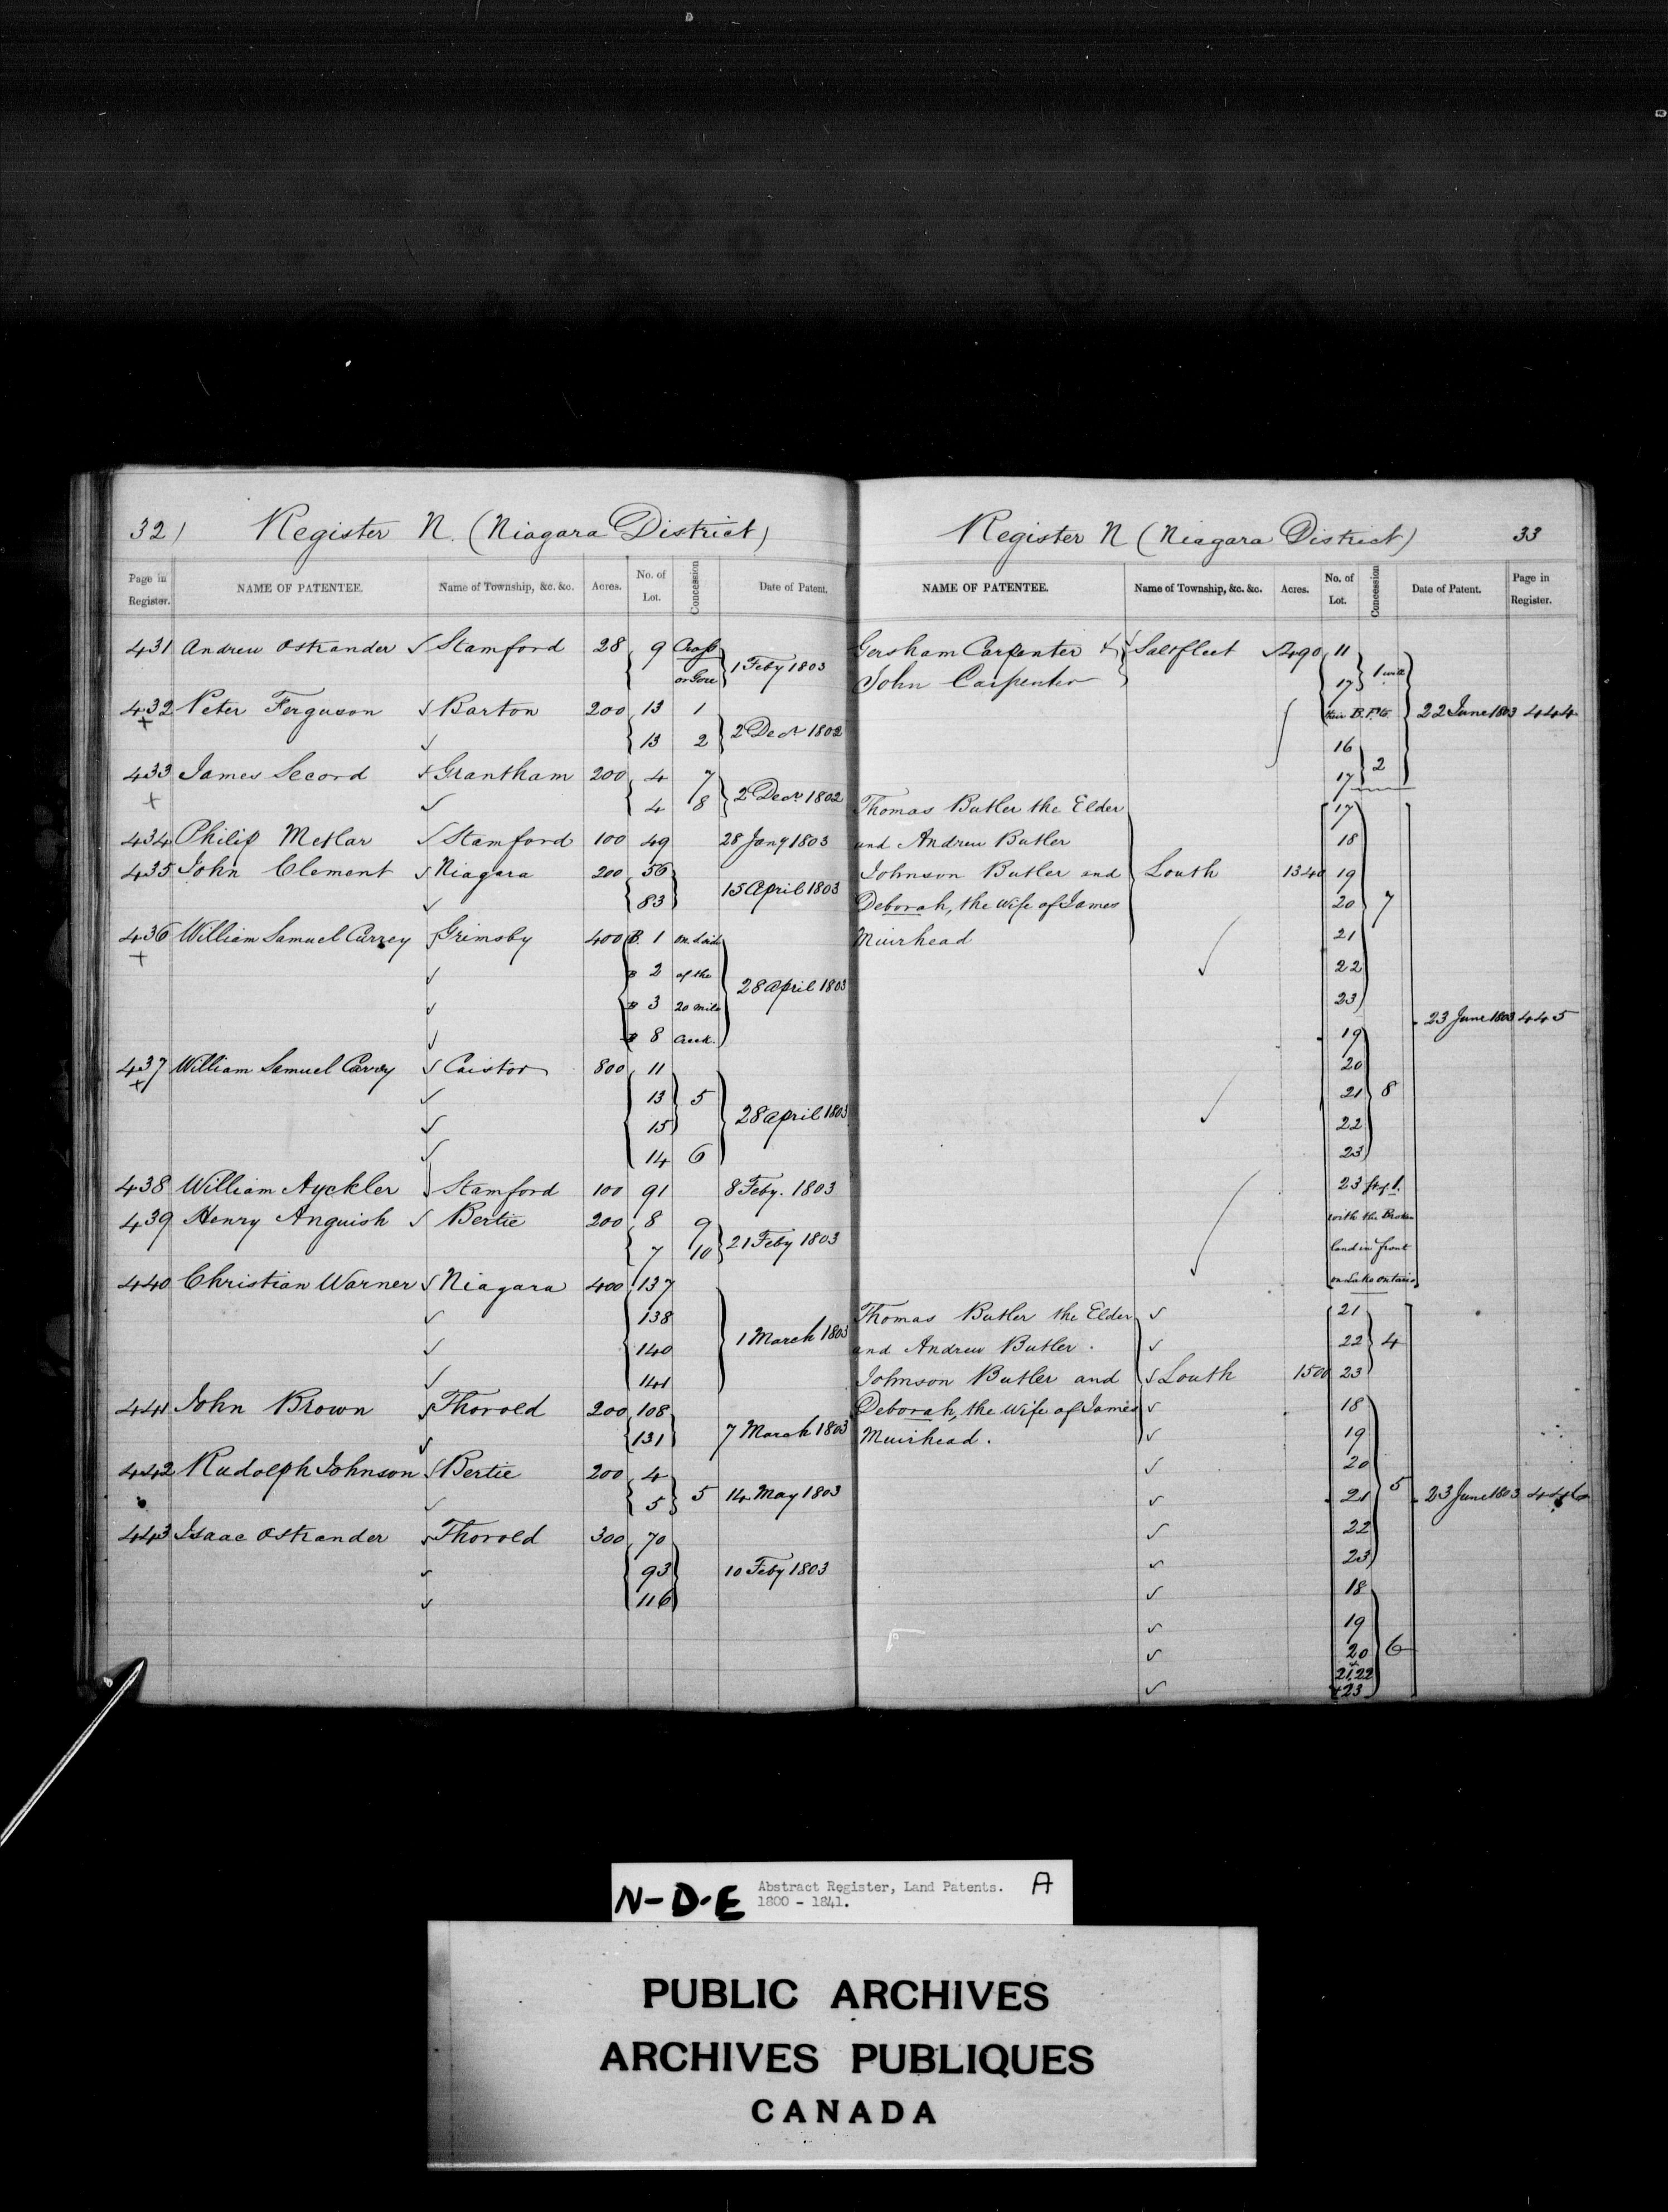 32) Register N. (Niagara District)
Page in Register. NAME OF PATENTEE. Name of Township, &c. &c. Acres. No. of Lot. Concession Date of Patent.
431 Andrew Ostrander ✓ Stamford 28 9 Cross
or Gore 1 Feby 1803
432 Peter Ferguson ✓ Barton 200 13 1
+ ✓ 13 2 2 Decr 1802
433 James Secord ✓ Grantham 200 4 7
+ ✓ 4 8 2 Decr 1802
434 Philip Metlar ✓ Stamford 100 49 28 Jany 1803
435 John Clement ✓ Niagara 200 56
✓ 83 15 April 1803
436 William Samuel Currey ✓ Grimsby 400 B. 1
+ ✓ B 2 of the
✓ B 3 20 mile 28 April 1803
✓ B 8 Creek.
437 William Samuel Currey ✓ Caistor 800 11
+ ✓ 13 5
✓ 15 28 April 1803
✓ 14 6
438 William Ayckler ✓ Stamford 100 91 8 Feby. 1803
439 Henry Anguish ✓ Bertie 200 8 9
7 10 21 Feby 1803
440 Christian Warner ✓ Niagara 400 137
✓ 138
✓ 140 1 March 1803
✓ 141
441 John Brown ✓ Thorold 200 108
✓ 131 7 March 1803
442 Rudolph Johnson ✓ Bertie 200 4
✓ 5 5 14 May 1803
443 Isaac Ostrander ✓ Thorold 300 70
✓ 93 10 Feby 1803
✓ 116
Register N (Niagara District) 33
NAME OF PATENTEE. Name of Township, &c. &c. Acres. No. of Lot. Concession Date of Patent. Page in Register.
Gersham Carpenter & ✓ Saltfleet ✓ 490 11
John Carpenter 17 1 with
their B. Fts. 22 June 1803 444
16
17 2
Thomas Butler the Elder 17
and Andrew Butler 18
Johnson Butler and Louth 1340 19
Deborah, the Wife of James 20 7
Muirhead 21
✓ 22
23
19 23 June 1803 445
20
✓ 21 8
22
23
23
with the Broken
✓ land in front
on Lake Ontario
Thomas Butler the Elder ✓ 21
and Andrew Butler. ✓ 22 4
Johnson Butler and ✓ Louth 1500 23
Deborah, the Wife of James ✓ 18
Muirhead. ✓ 19
✓ 20
✓ 21 5 23 June 1803 446
✓ 22
✓ 23
✓ 18
✓ 19
✓ 20 6
21,22
✓ + 23
N-D-E Abstract Register, Land Patents. A
1800 - 1841.
PUBLIC ARCHIVES
ARCHIVES PUBLIQUES
CANADA